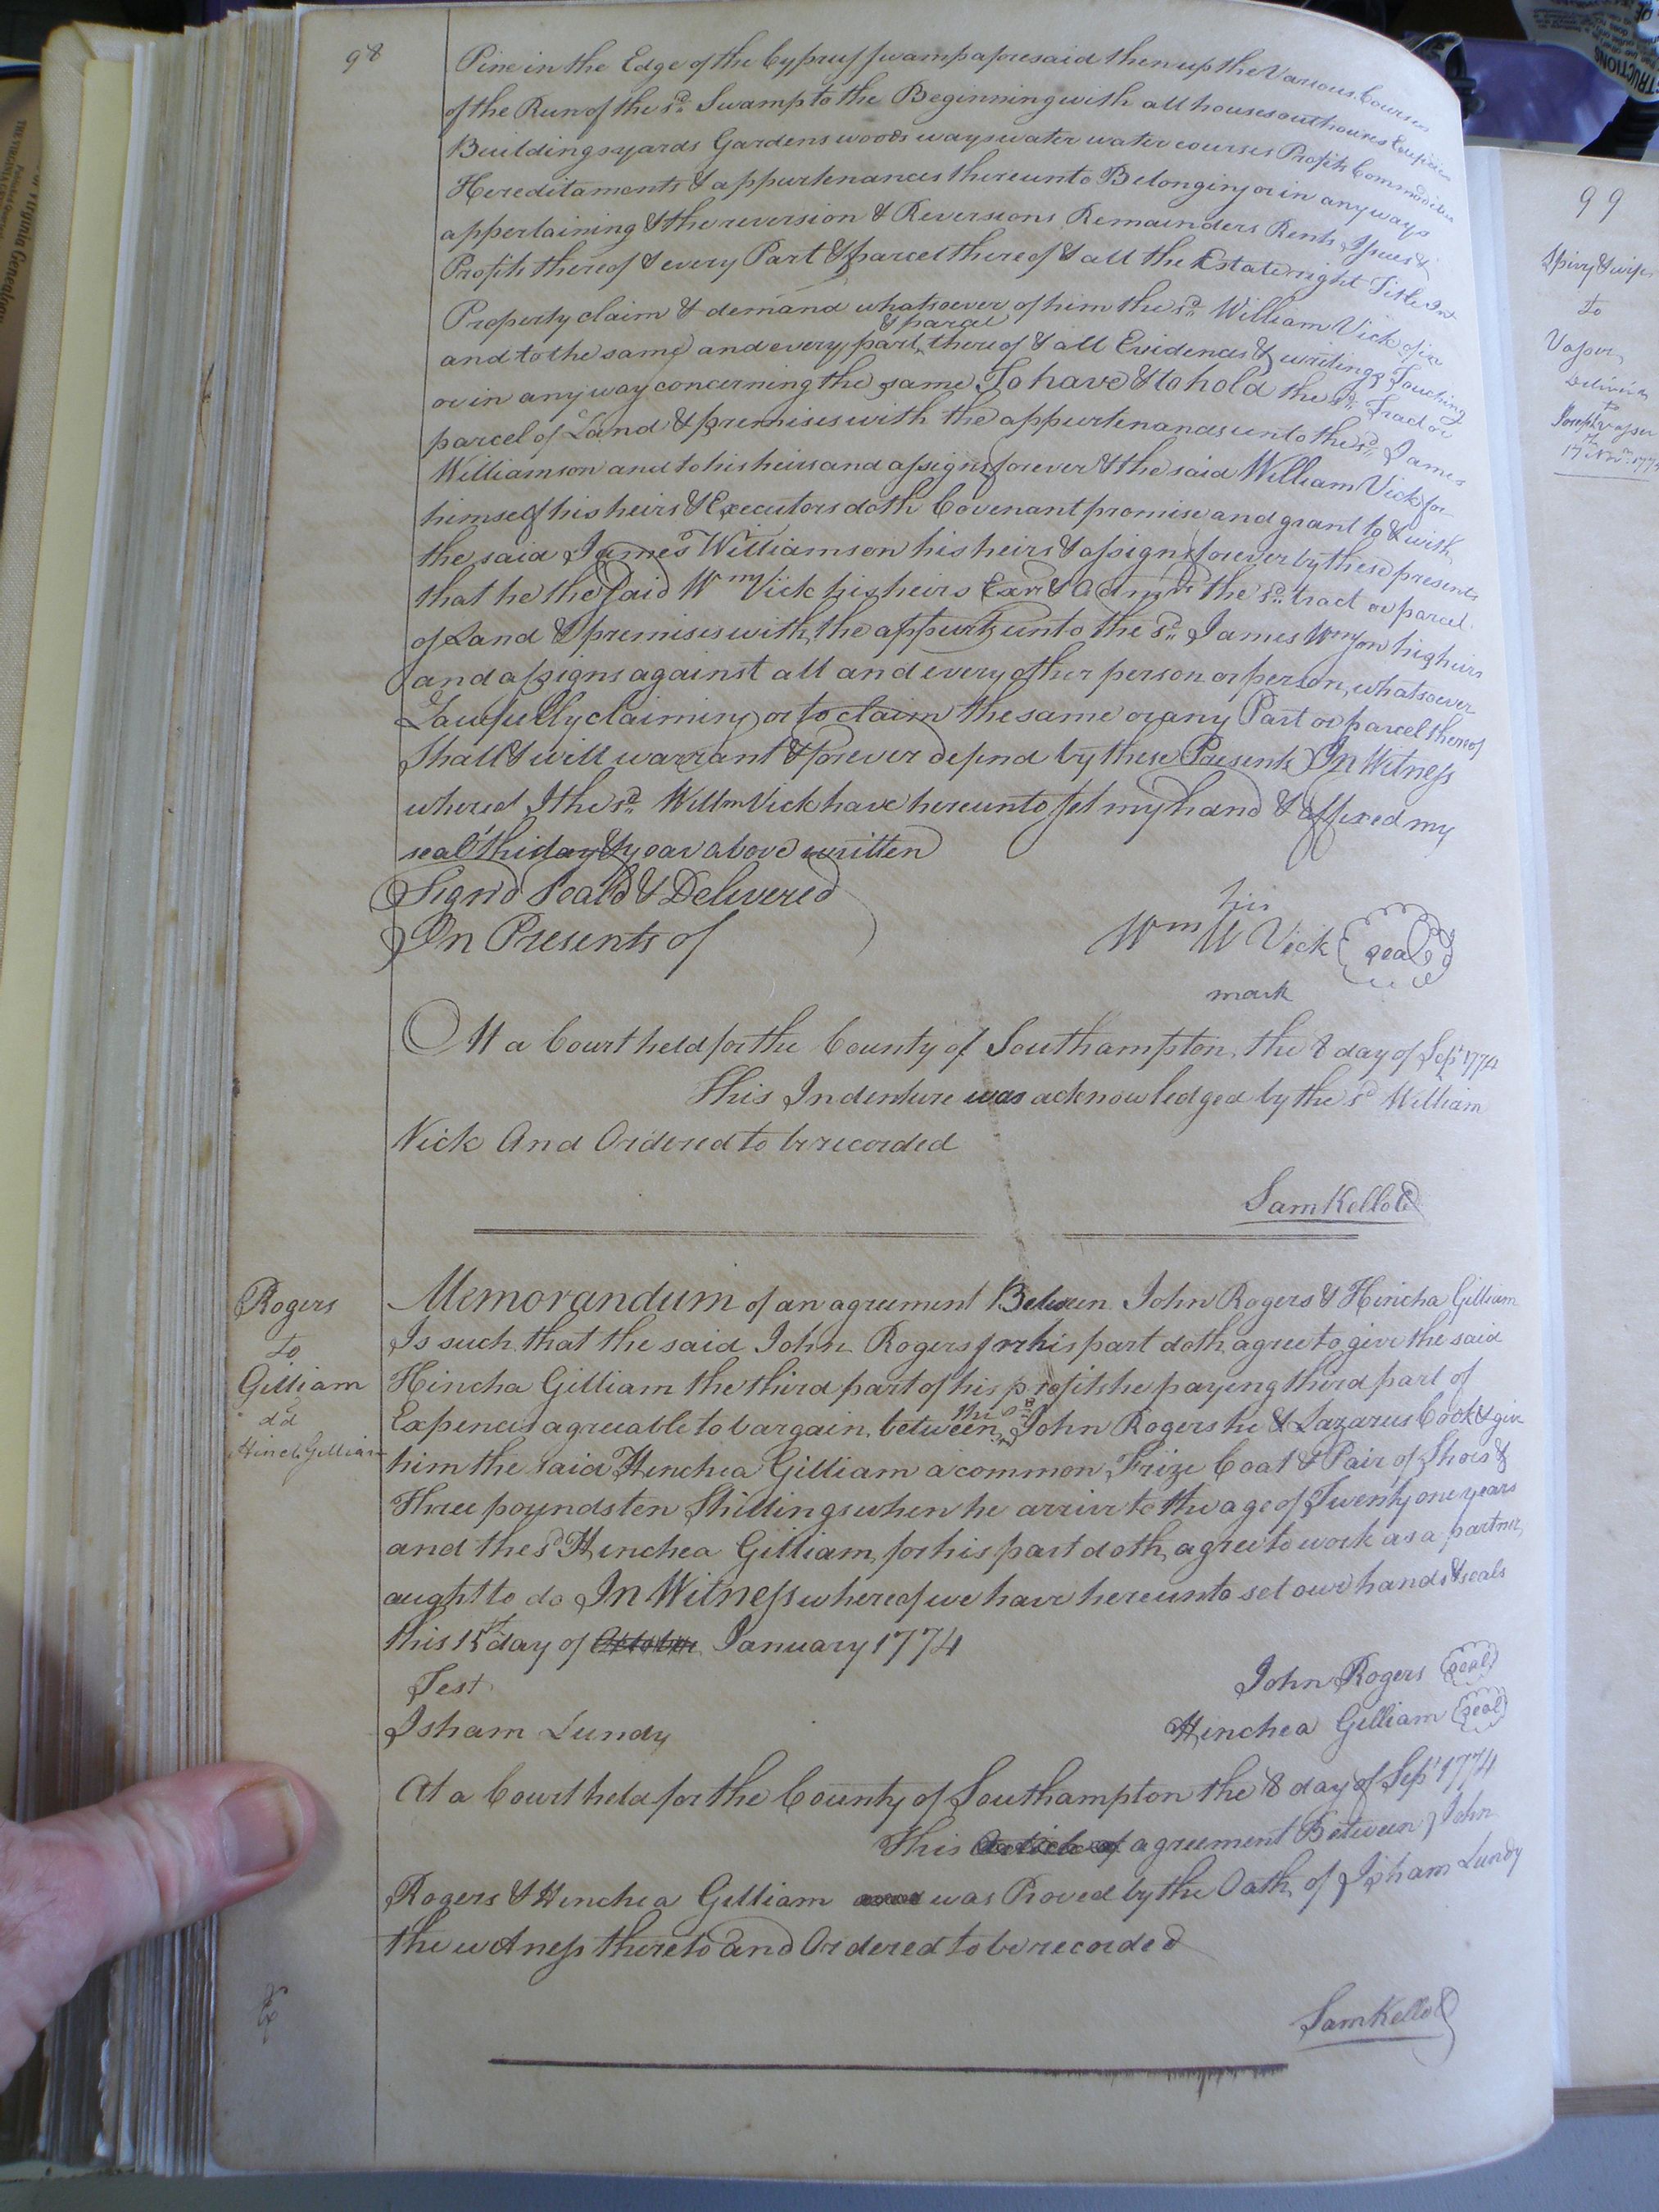 98
Pine in the Edge of the Cypruss swamp aforesaid then up the Various Courses
of the Run of the sd. Swamp to the Beginning with all houses outhouses Edifices
Buildings yards Gardens woods ways water water courses Profits Commodities
Hereditaments & appurtenances thereunto Belonging or in any ways
appertaining & the reversion & Reversions Remainders Rents Issues &
Profits thereof & every Part & parcel thereof & all the Estate right Title Int
Property claim & demand whatsoever of him the sd. William Vick of in
and to the same and every part & parcel thereof & all Evidences & writings Touching
or in any way concerning the same To have & to hold the sd. Tract or
parcel of Land & premises with the appurtenances unto the sd. James
Williamson and to his heirs and assigns forever & the said William Vick for
himself his heirs & Executors doth Covenant promise and grant to & with
the said James Williamson his heirs & assigns forever by these presents
that he the said Wm Vick his heirs Exrs & Admrs the sd. tract or parcel
of Land & premises with the appurts unto the sd. James Wmson his heirs
and assigns against all and every other person or persons whatsoever
Lawfully claiming or to claim the same or any Part or parcel thereof
Shall & will warrant & forever defend by these Presents In Witness
whereof I the sd. Willm Vick have hereunto set my hand & affixed my
seal this day & year above written
Sign'd Seal'd & Delivered
In Presents of
his
Wm W Vick seal
mark
At a Court held for the County of Southampton the 8 day of Sept 1774
This Indenture was acknowledged by the sd William
Vick And Ordered to be recorded
Sam Kello
Rogers
to
Gilliam
dd
Hinch Gilliam
Memorandum of an agreement Between John Rogers & Hincha Gilliam
Is such that the said John Rogers for his part doth agree to give the said
Hincha Gilliam the third part of his profits he paying third part of
Expences agreeable to bargain between the sd John Rogers he & Lazarus Cook & give
him the said Hinchea Gilliam a common Frize Coat & Pair of Shoes &
Three pounds ten Shillings when he arrive to the age of Twenty one years
and the sd Hinchea Gilliam for his part doth agree to work as a partner
aught to do In Witness whereof we have hereunto set our hands & seals
this 15th day of October January 1774
Test
John Rogers seal
Isham Lundy
Hinchea Gilliam seal
At a Court held for the County of Southampton the 8 day of Sept 1774
This Article of agreement Between John
Rogers & Hinchea Gilliam was Proved by the Oath of Isham Lundy
the witness thereto and Ordered to be recorded
Sam Kello
99
Spivy & wife
to
Vasser
Delivered
to
Joseph Vasser
17 Novr. 177
Virginia Genealogy